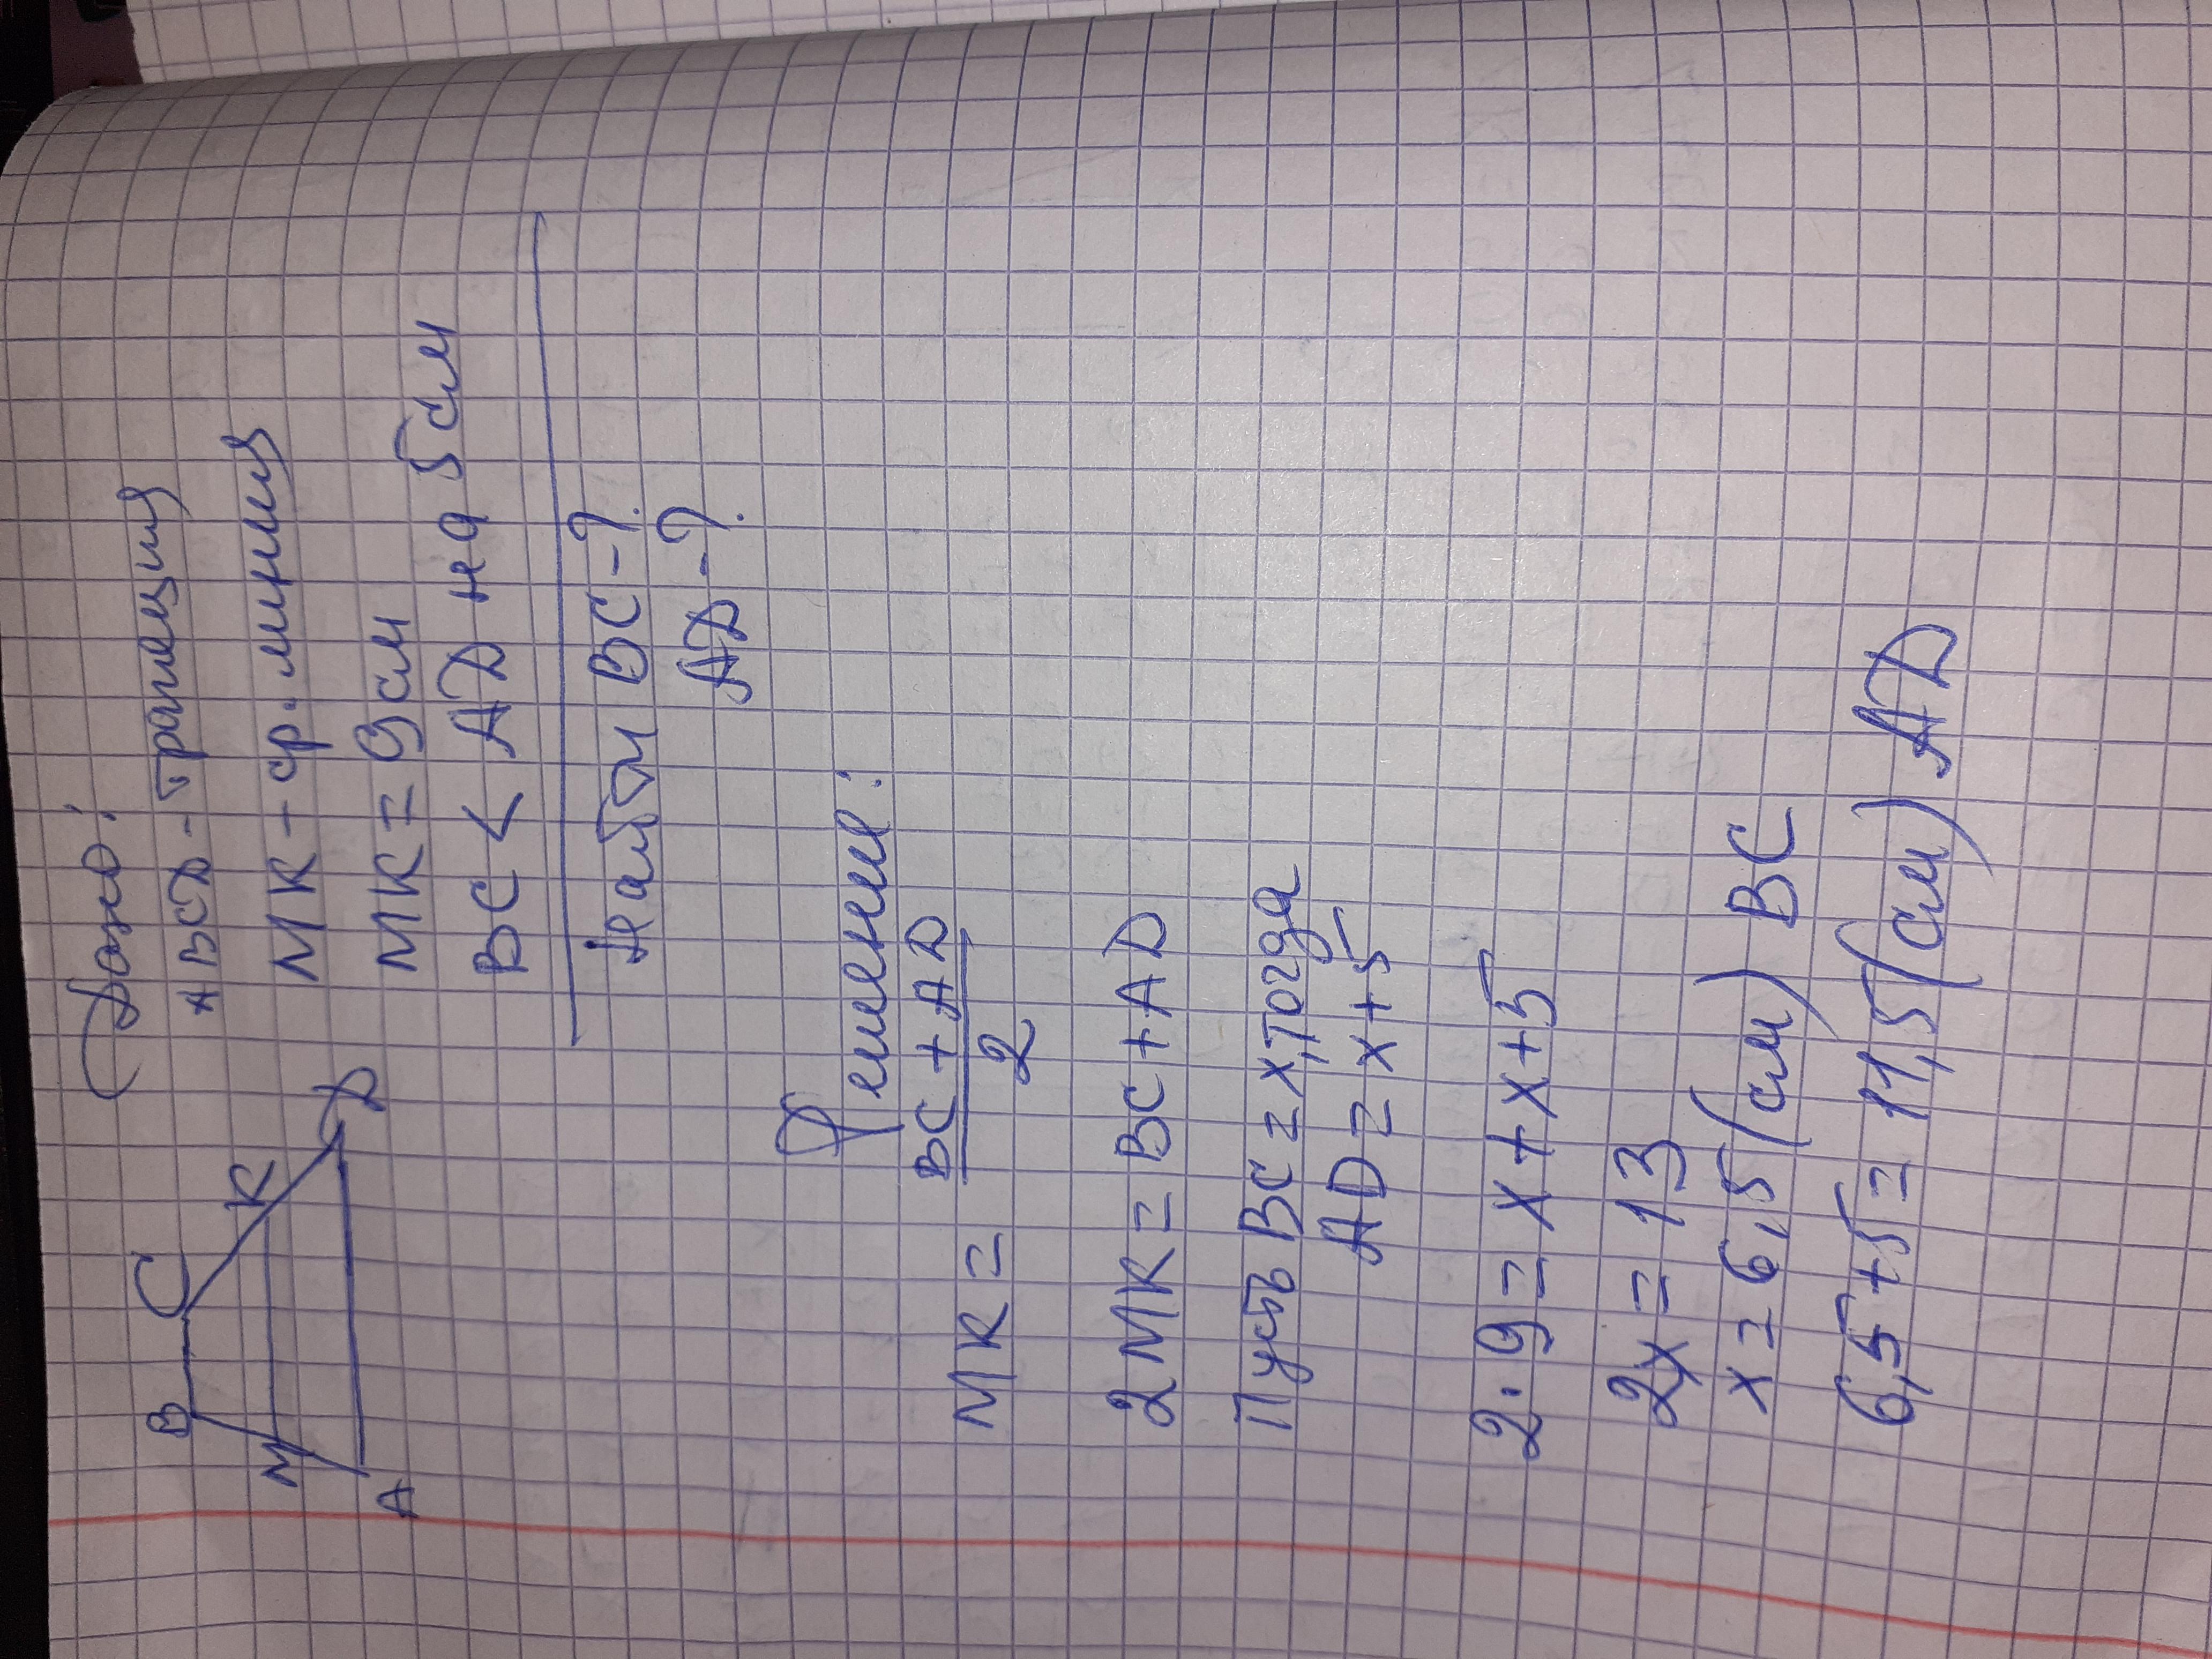 B C
M K
A D
Дано:
ABCD - трапеция
MK - ср. линия
MK = 9 см
BC < AD на 5 см
Найти BC - ?
AD - ?
Решение:
MK = BC + AD / 2
2MK = BC + AD
Пусть BC = x, тогда
AD = x + 5
2 · 9 = x + x + 5
2x = 13
x = 6,5 (см) BC
6,5 + 5 = 11,5 (см) AD